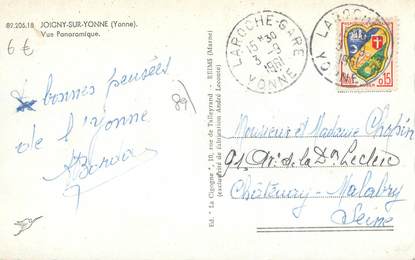 89.206.18 JOIGNY-SUR-YONNE (Yonne).
Vue Panoramique.
6 €
bonnes pensées
de l'Yonne
89
Ed. "La Cigogne", 10, rue de Talleyrand - REIMS (Marne)
(exclusivité de distribution André Lecomte)
LAROCHE-GARE
15 H 30
3 - 9
1961
YONNE
LAROCHE
YONNE
0,15
Monsieur et Madame Chopin
91 Av. de la Dn Leclerc
Châtenay-Malabry
Seine